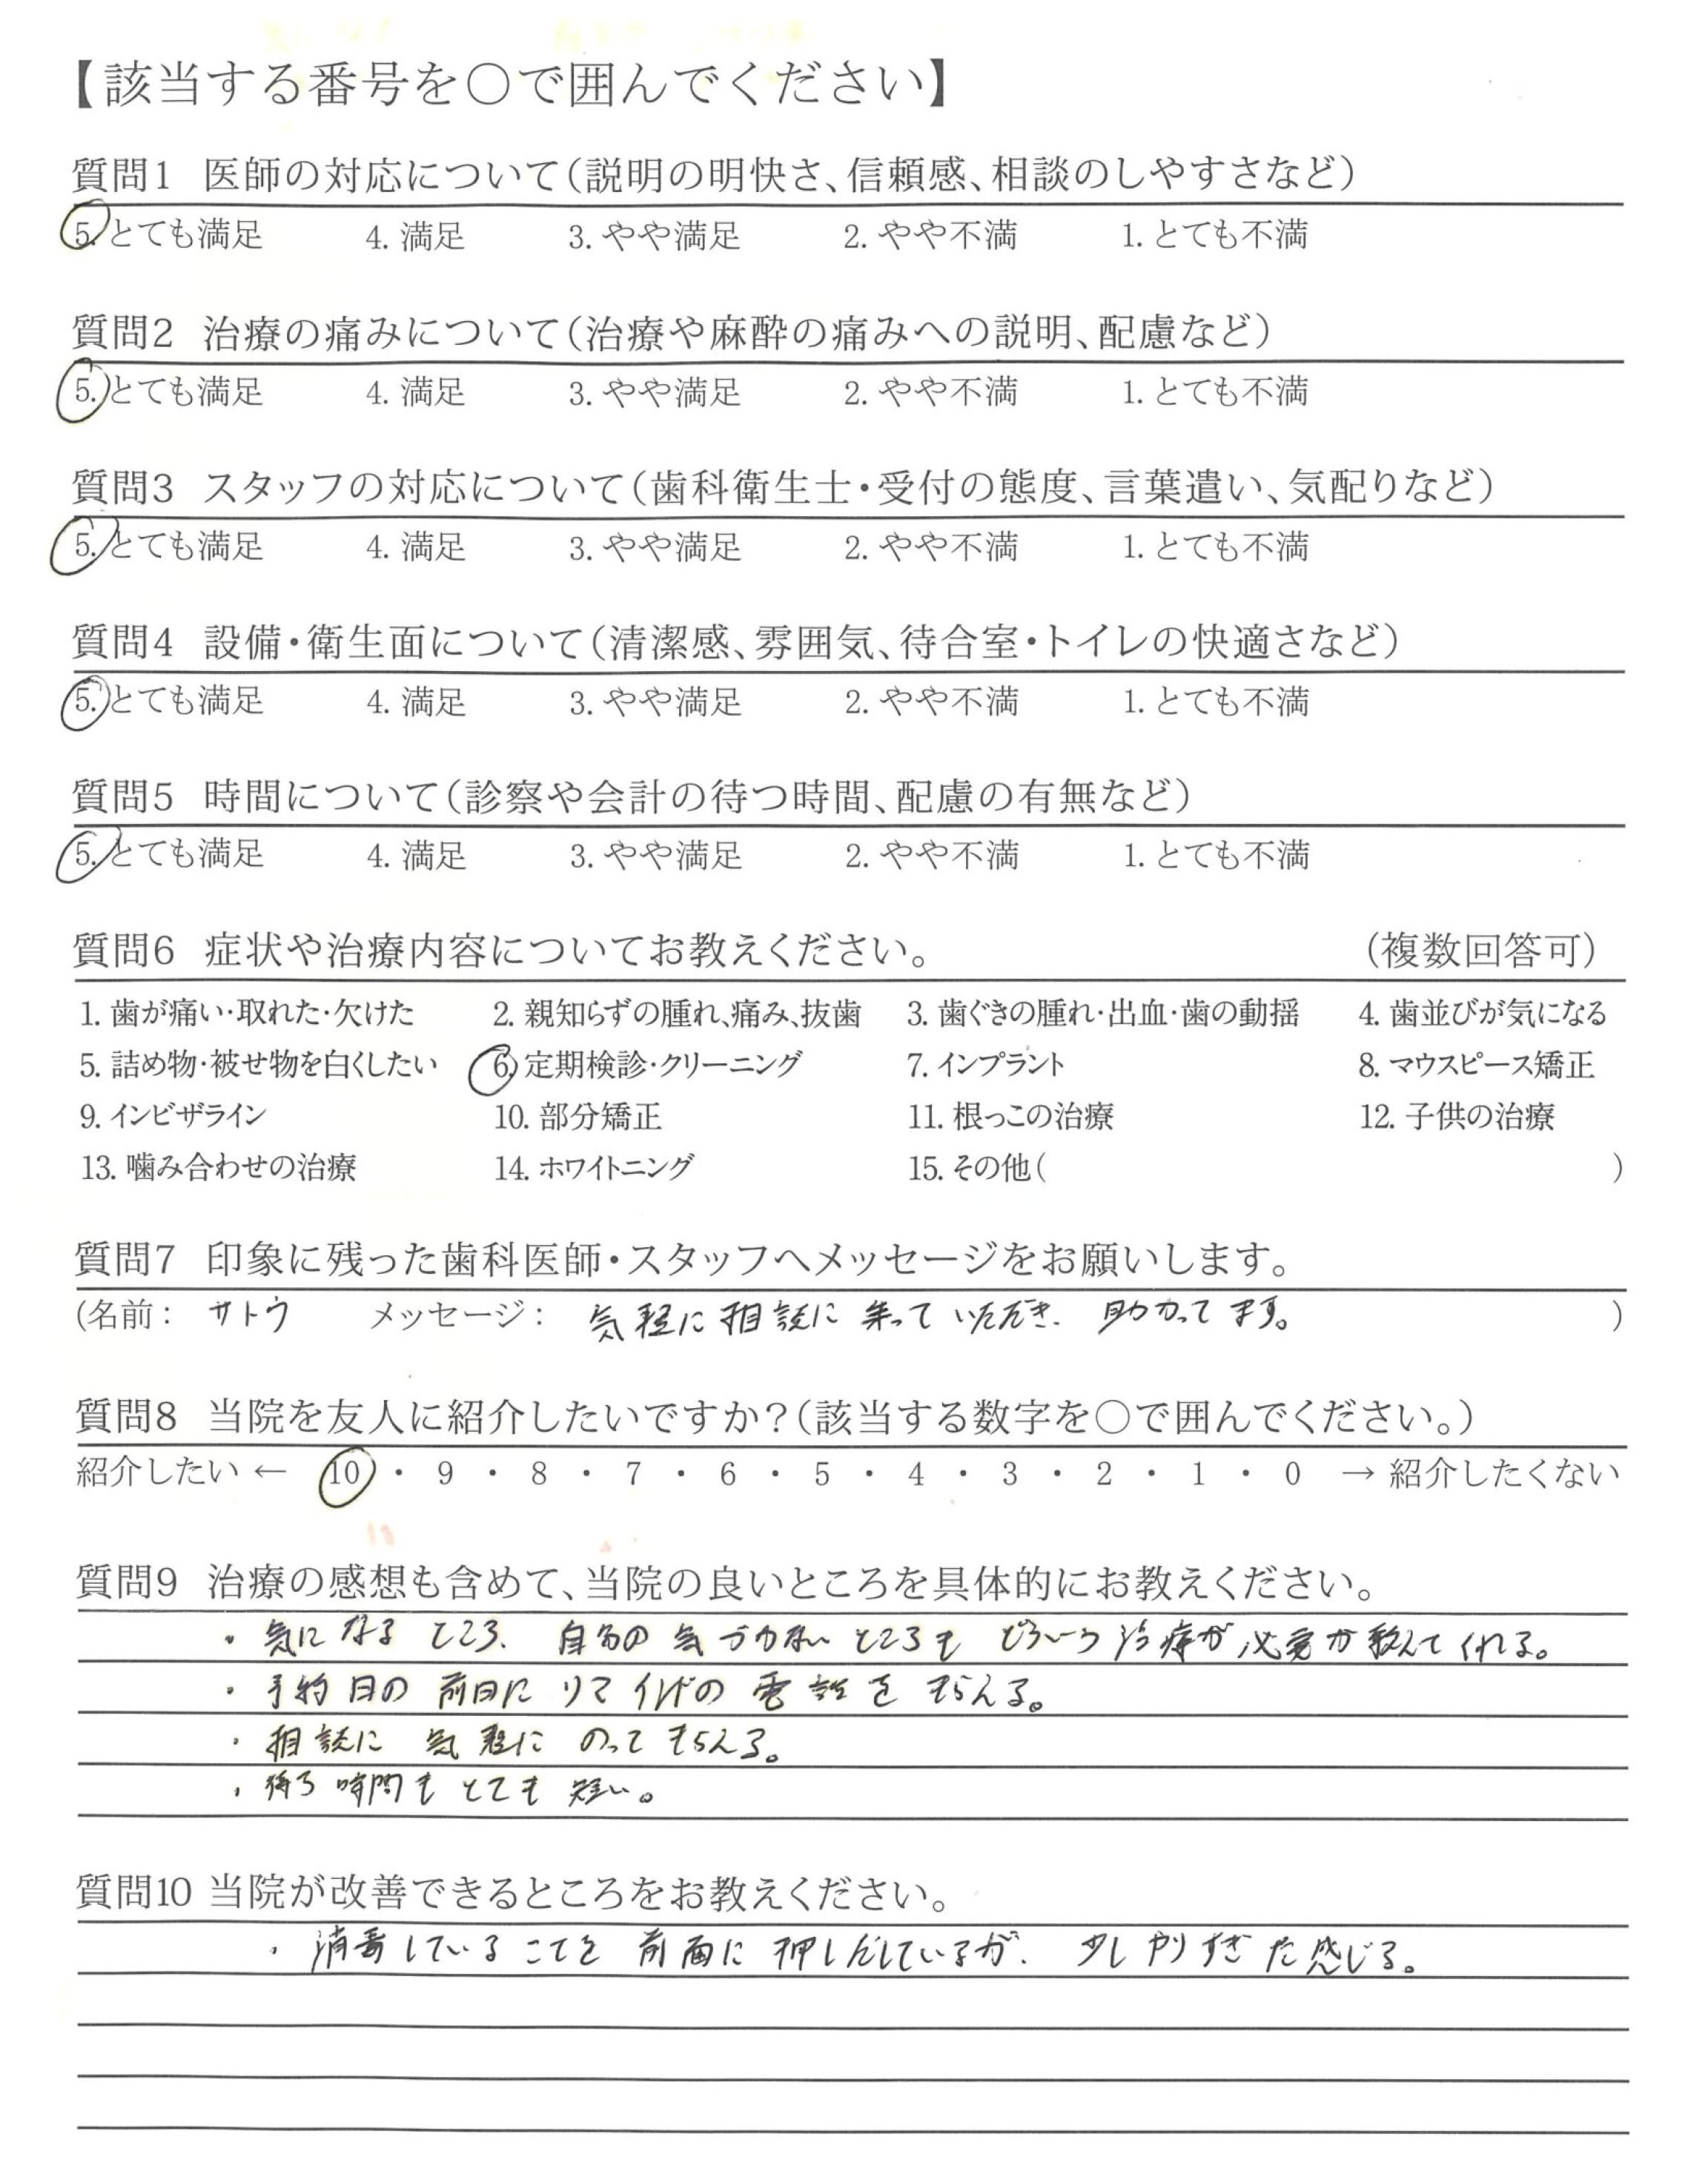 【該当する番号を○で囲んでください】
質問1 医師の対応について(説明の明快さ、信頼感、相談のしやすさなど)
5. とても満足 4. 満足 3. やや満足 2. やや不満 1. とても不満
質問2 治療の痛みについて(治療や麻酔の痛みへの説明、配慮など)
5. とても満足 4. 満足 3. やや満足 2. やや不満 1. とても不満
質問3 スタッフの対応について(歯科衛生士・受付の態度、言葉遣い、気配りなど)
5. とても満足 4. 満足 3. やや満足 2. やや不満 1. とても不満
質問4 設備・衛生面について(清潔感、雰囲気、待合室・トイレの快適さなど)
5. とても満足 4. 満足 3. やや満足 2. やや不満 1. とても不満
質問5 時間について(診察や会計の待つ時間、配慮の有無など)
5. とても満足 4. 満足 3. やや満足 2. やや不満 1. とても不満
質問6 症状や治療内容についてお教えください。 (複数回答可)
1. 歯が痛い・取れた・欠けた 2. 親知らずの腫れ、痛み、抜歯 3. 歯ぐきの腫れ・出血・歯の動揺 4. 歯並びが気になる
5. 詰め物・被せ物を白くしたい 6. 定期検診・クリーニング 7. インプラント 8. マウスピース矯正
9. インビザライン 10. 部分矯正 11. 根っこの治療 12. 子供の治療
13. 噛み合わせの治療 14. ホワイトニング 15. その他( )
質問7 印象に残った歯科医師・スタッフへメッセージをお願いします。
(名前: サトウ メッセージ: 気軽に相談に乗っていただき、助かってます。 )
質問8 当院を友人に紹介したいですか?(該当する数字を○で囲んでください。)
紹介したい ← 10 ・ 9 ・ 8 ・ 7 ・ 6 ・ 5 ・ 4 ・ 3 ・ 2 ・ 1 ・ 0 → 紹介したくない
質問9 治療の感想も含めて、当院の良いところを具体的にお教えください。
・気になるところ、自分の気づかないところもどういう治療が必要か教えてくれる。
・予約日の前日にリマインドの電話をもらえる。
・相談に気軽にのってもらえる。
・待つ時間もとても短い。
質問10 当院が改善できるところをお教えください。
・消毒していることを前面に押しだしているが、少しやりすぎた感じる。